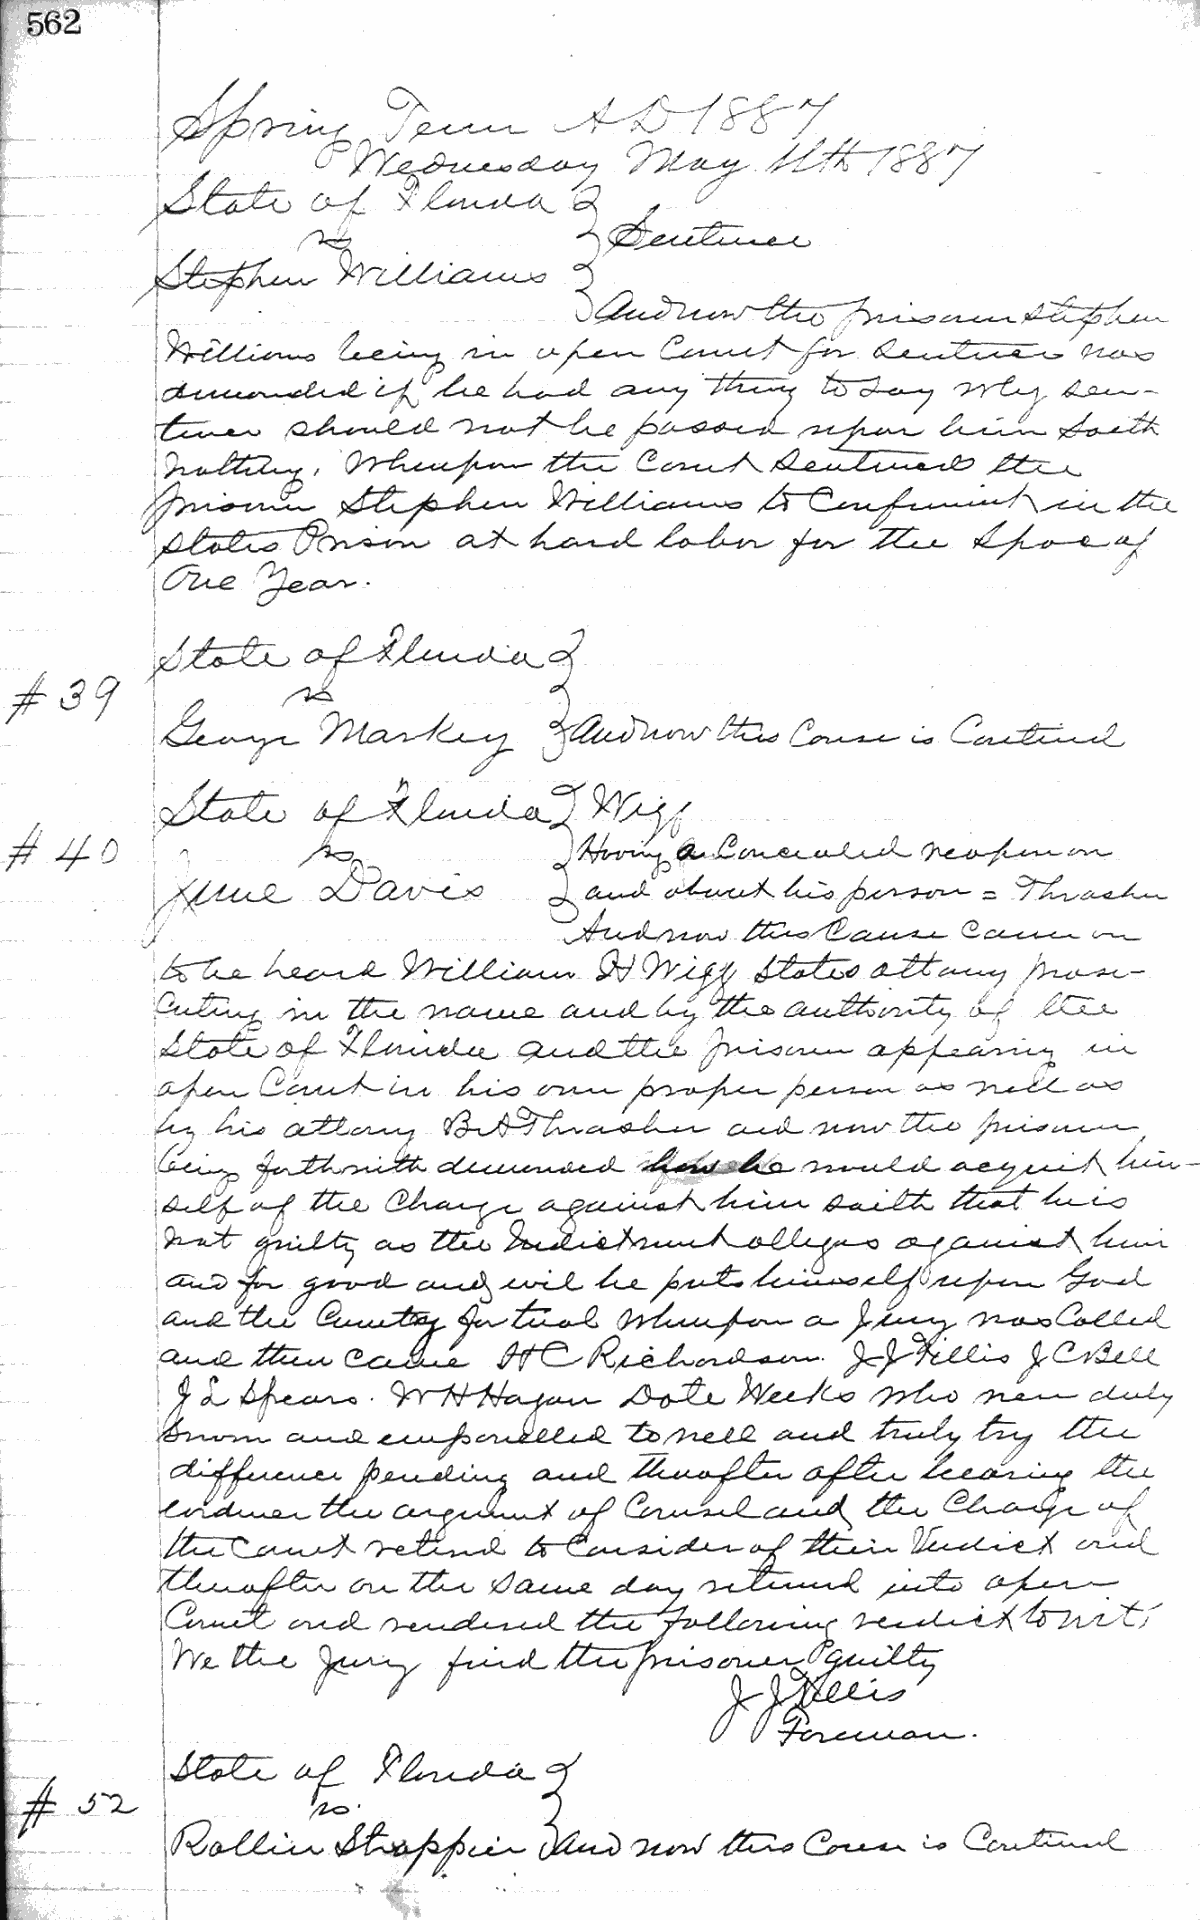 562
Spring Term A D 1887
Wednesday May 11th 1887
State of Florida
vs
Sentence
Stephen Williams
And now the prisoner Stephen
Williams being in open Court for Sentence was
demanded if he had any thing to say why sen-
tence should not be passed upon him Saith
nothing. Whereupon the Court Sentenced the
prisoner Stephen Williams to Confinement in the
States Prison at hard labor for the Space of
One Year.
State of Florida
# 39
vs
George Markey And now this Cause is Continued
State of Florida Wigg
# 40
vs
Having a Concealed weapon on
June Davis and about his person = Thrasher
And now this Cause came on
to be heard William H Wigg States attorney prose-
cuting in the name and by the authority of the
State of Florida and the prisoner appearing in
open Court in his own proper person as well as
by his attorney B A Thrasher and now the prisoner
being forthwith demanded how he would acquit him-
self of the Charge against him saith that he is
not guilty as the Indictment alleges against him
and for good and evil he puts himself upon God
and the Country for trial Whereupon a Jury was Called
and then came H C Richardson. J J Tillis J C Bell
J L Spears. W H Hagan Date Weeks who were duly
Sworn and empanelled to well and truly try the
difference pending and thereafter after hearing the
evidence the argument of Counsel and the Charge of
the Court retired to Consider of their Verdict and
thereafter on the same day returned into open
Court and rendered the following verdict to wit;
We the Jury find the prisoner guilty
J J Tillis
Foreman.
State of Florida
# 52
vs.
Rollin And now this Cause is Continued